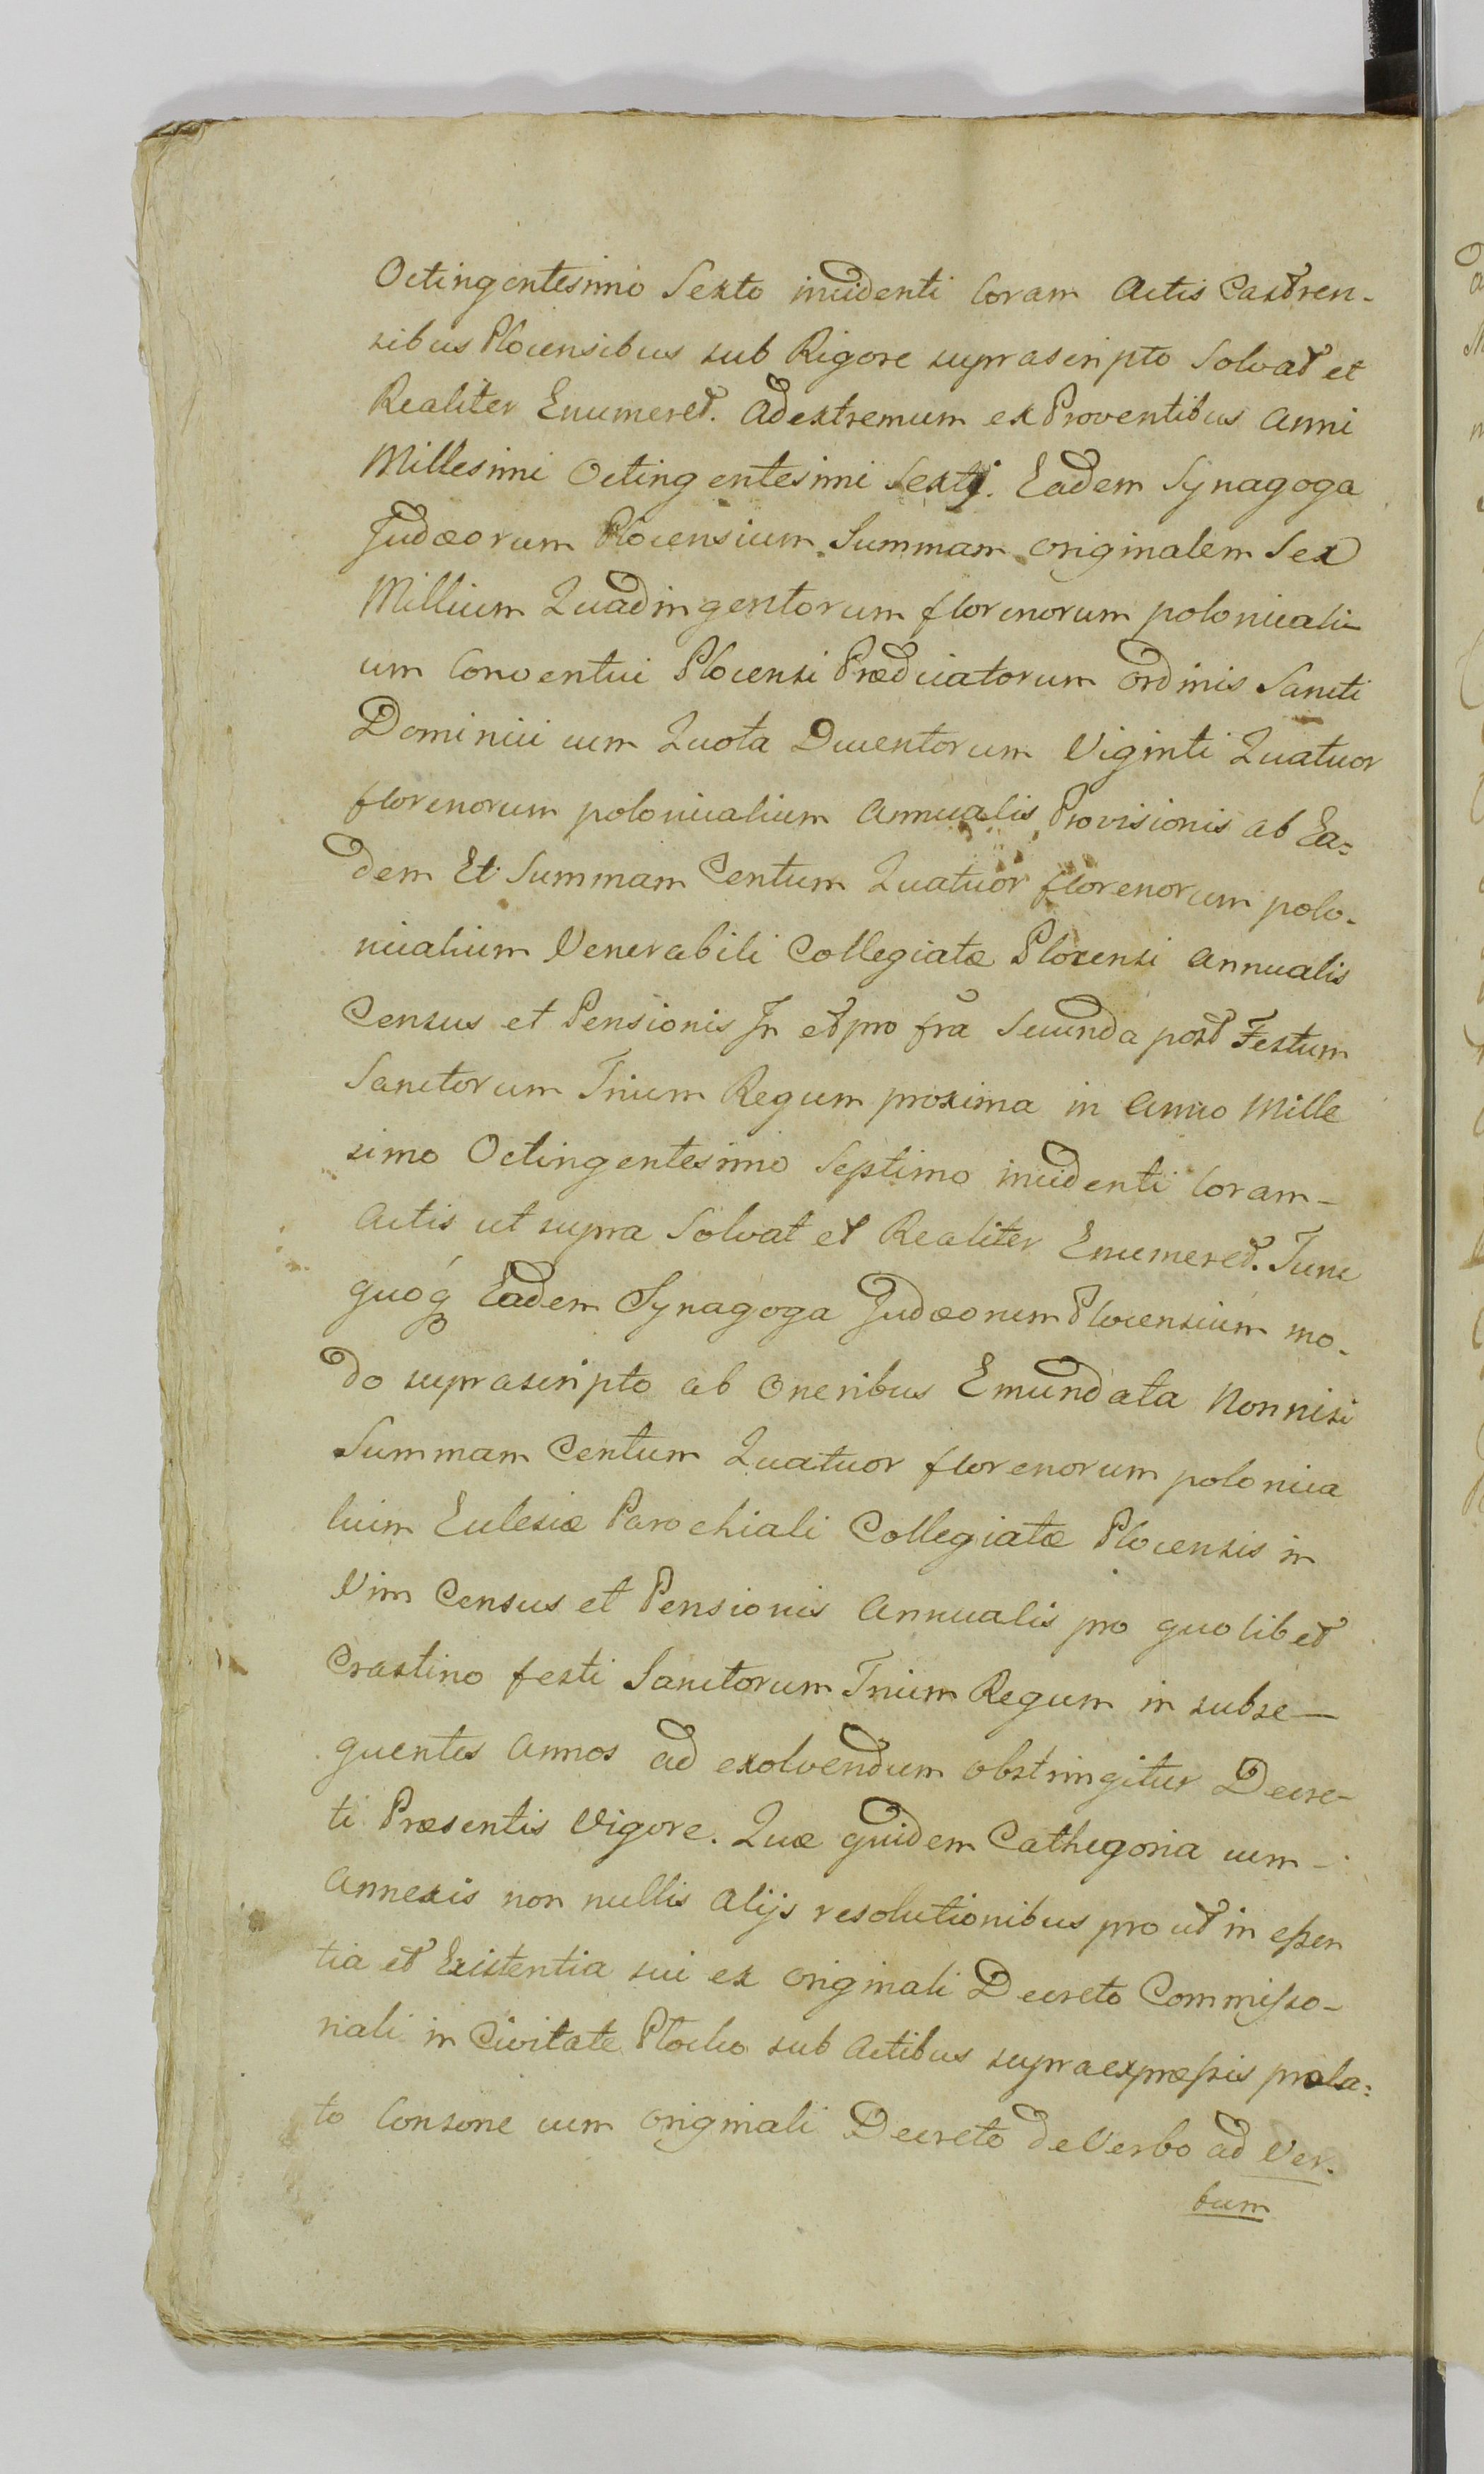 Octingentesimo Sexto incidenti Coram Actis Castren-
sibus Plocensibus sub Rigore suprascripto Solvat et
Realiter Enumeret. Ad extremum ex Proventibus Anni
Millesimi Octingentesimi Sexti. Eadem Synagoga
Judæorum Plocensium Summam originalem Sex
Millium Quadringentorum florenorum polonicali-
um Conventui Plocensi Prædicatorum Ordinis Sancti
Dominici cum Quota Ducentorum Viginti Quatuor
florenorum polonicalium Annualis Provisionis ab Ea=
dem Et Summam Centum Quatuor florenorum polo-
nicalium Venerabili Collegiatæ Plocensi annualis
Census et Pensionis In et pro fra Secunda post Festum
Sanctorum Trium Regum proxima in Anno Mille
simo Octingentesimo Septimo incidenti Coram-
Actis ut supra Solvat et Realiter Enumeret. Tunc
quoq Eadem Synagoga Judæorum Plocensium mo-
do suprascripto ab Oneribus Emundata Nonnisi
Summam Centum Quatuor florenorum polonica
lium Eclesiæ Parochiali Collegiatæ Plocensis in
Vim Census et Pensionis Annualis pro quolibet
Crastino festi Sanctorum Trium Regum in subse-
quentes Annos ad exolvendum obstringitur Decre-
ti Præsentis Vigore. Quæ quidem Cathegoria cum-
Annexis non nullis Alijs resolutionibus pro ut in eßen
tia et Existentia sui ex Originali Decreto Commißo-
riali in Civitate Plocko sub Actibus supraexpreßis præla=
to Consone cum Originali Decreto de Verbo ad Ver.
bum